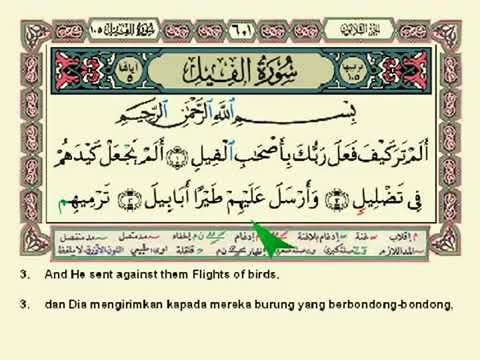 ١٠٥ سُورَةُ الفِيلِ
٦٠١
الجزء الثلاثون
آياتها ٥
سُورَةُ الفِيلِ
ترتيبها ١٠٥
بِسْمِ اللَّهِ الرَّحْمَٰنِ الرَّحِيمِ
أَلَمْ تَرَ كَيْفَ فَعَلَ رَبُّكَ بِأَصْحَابِ الْفِيلِ ﴿١﴾ أَلَمْ يَجْعَلْ كَيْدَهُمْ
فِي تَضْلِيلٍ ﴿٢﴾ وَأَرْسَلَ عَلَيْهِمْ طَيْرًا أَبَابِيلَ ﴿٣﴾ تَرْمِيهِم
3. And He sent against them Flights of birds,
3. dan Dia mengirimkan kapada mereka burung yang berbondong-bondong,